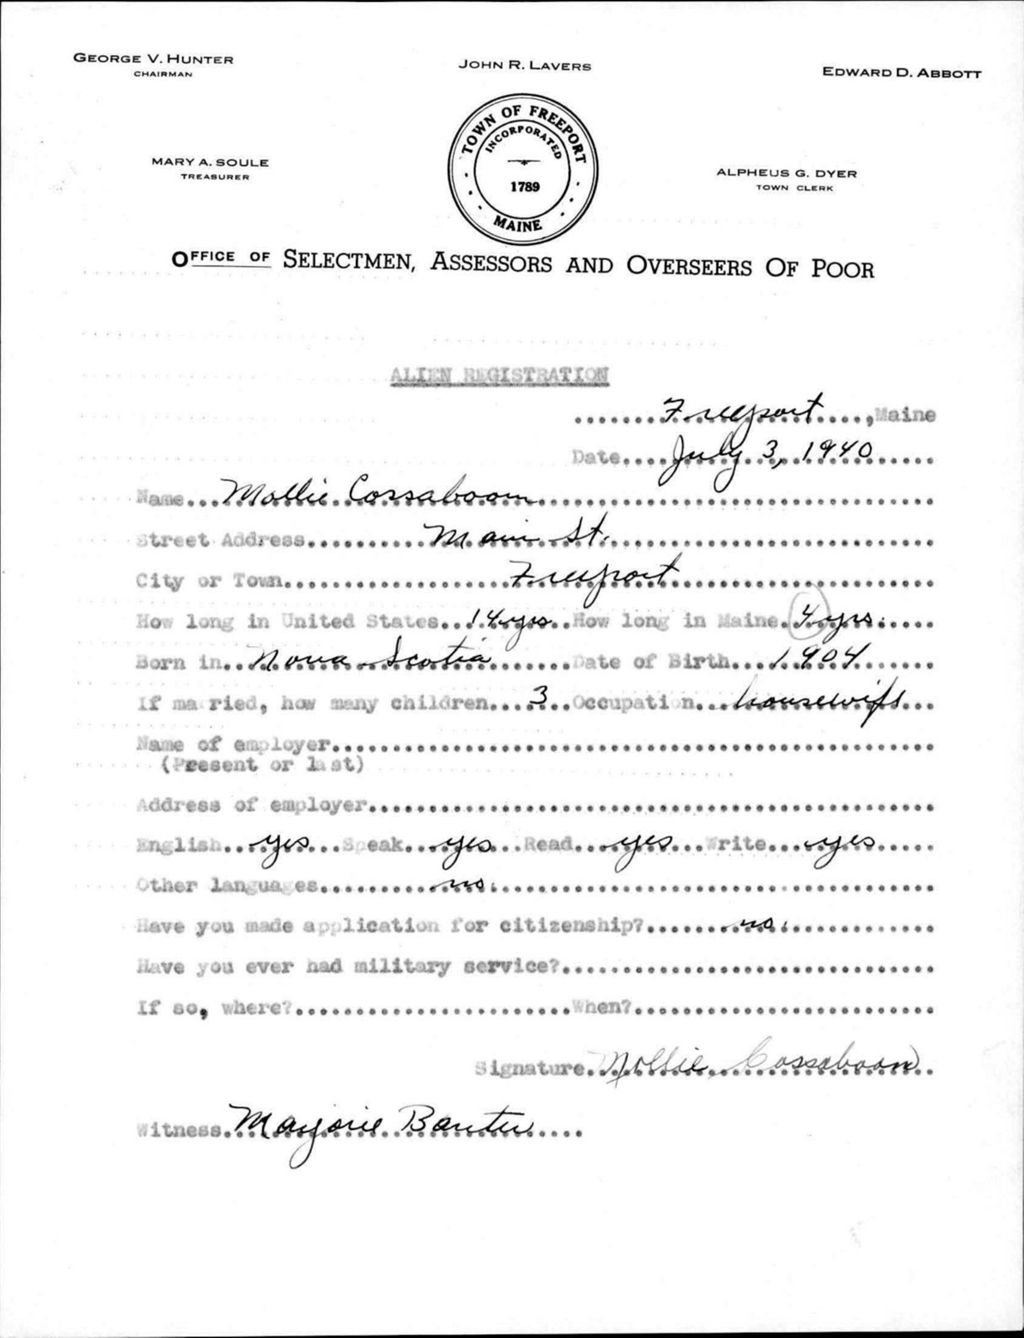 GEORGE V. HUNTER
CHAIRMAN
JOHN R. LAVERS
EDWARD D. ABBOTT
MARY A. SOULE
TREASURER
TOWN OF FREEPORT
INCORPORATED
1789
MAINE
ALPHEUS G. DYER
TOWN CLERK
OFFICE OF SELECTMEN, ASSESSORS AND OVERSEERS OF POOR
ALIEN REGISTRATION
.......Freeport....,Maine
Date....July 3, 1940.....
Name...Mollie Cossaboom...
Street Address...Main St....
City or Town...Freeport...
How long in United States...14 yrs...How long in Maine..4 yrs....
Born in..Nova Scotia.......Date of Birth...1904......
If married, how many children...3..Occupation...housewife...
Name of employer...
(Present or last)
Address of employer...
English...yes...Speak...yes...Read...yes...Write...yes.....
Other languages...no...
Have you made application for citizenship?...no...
Have you ever had military service?...
If so, where?...When?...
Signature..Mollie Cossaboom..
Witness.Marjorie....